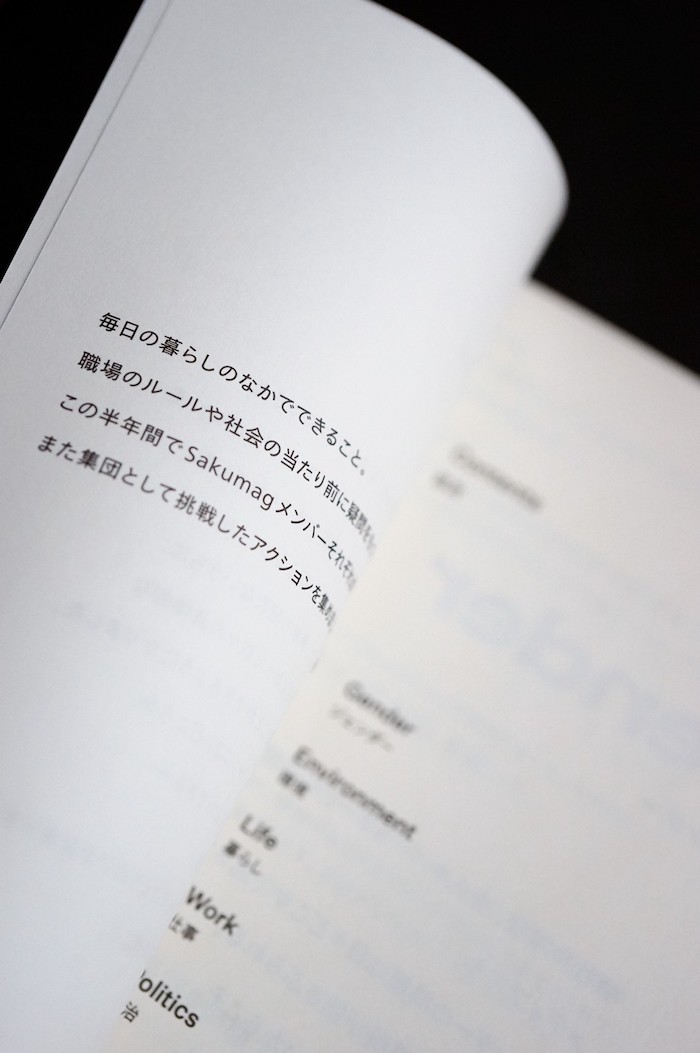 毎日の暮らしのなかでできること。
職場のルールや社会の当たり前に疑問を
この半年間でSakumagメンバーそれぞれ
また集団として挑戦したアクションを集め
Contents
目次
Gender
ジェンダー
Environment
環境
Life
暮らし
Work
仕事
olitics
治